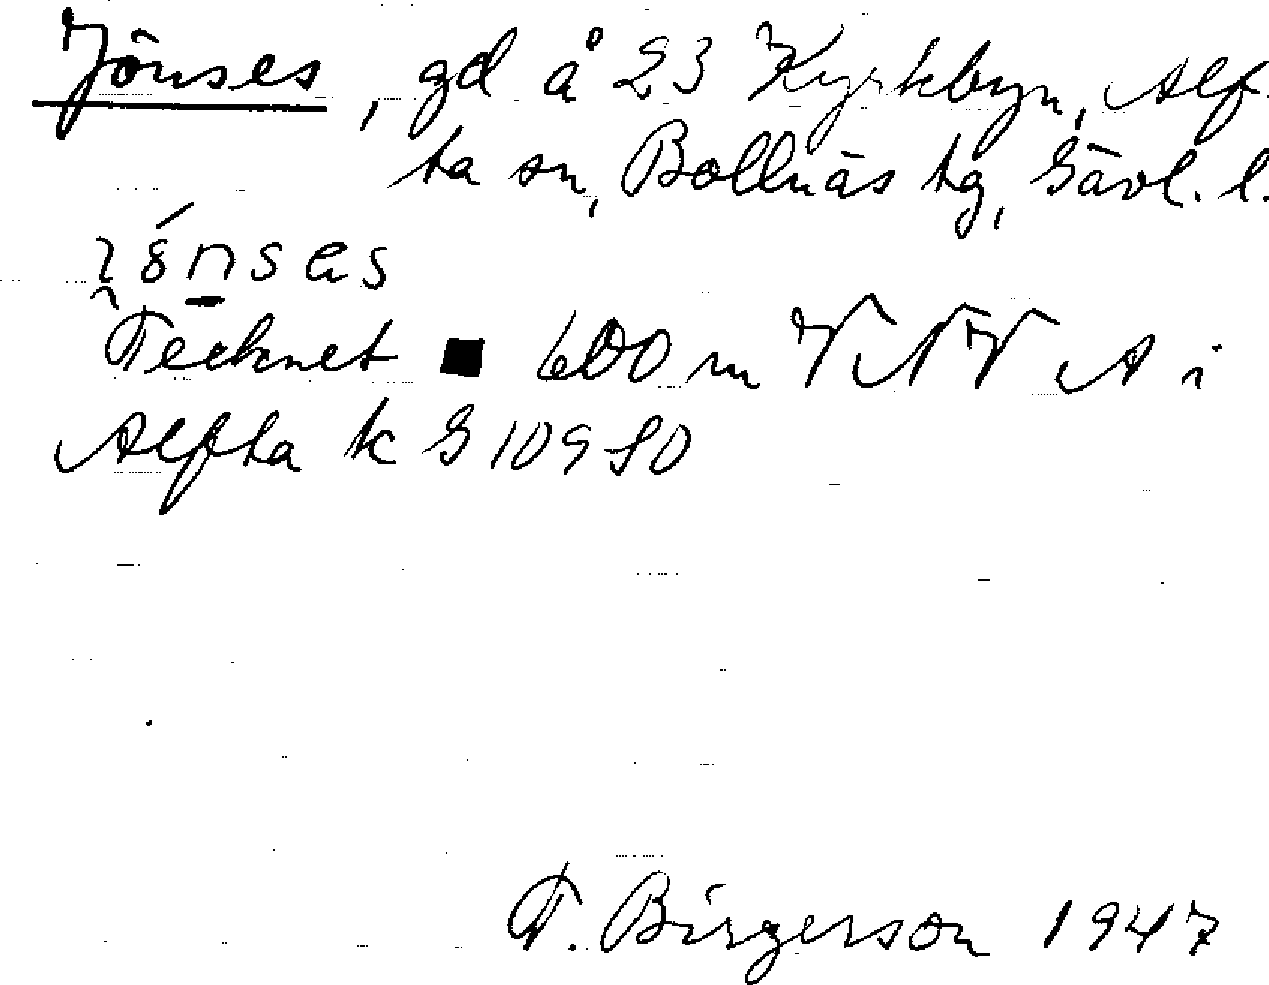 Jönses, gd å 23 Kyrkbyn, Alf-
ta sn, Bollnäs tg, Gävl. l.
Tecknet ■ 600 m VNV A i
Alfta k G 109 80
T. Birgerson 1947